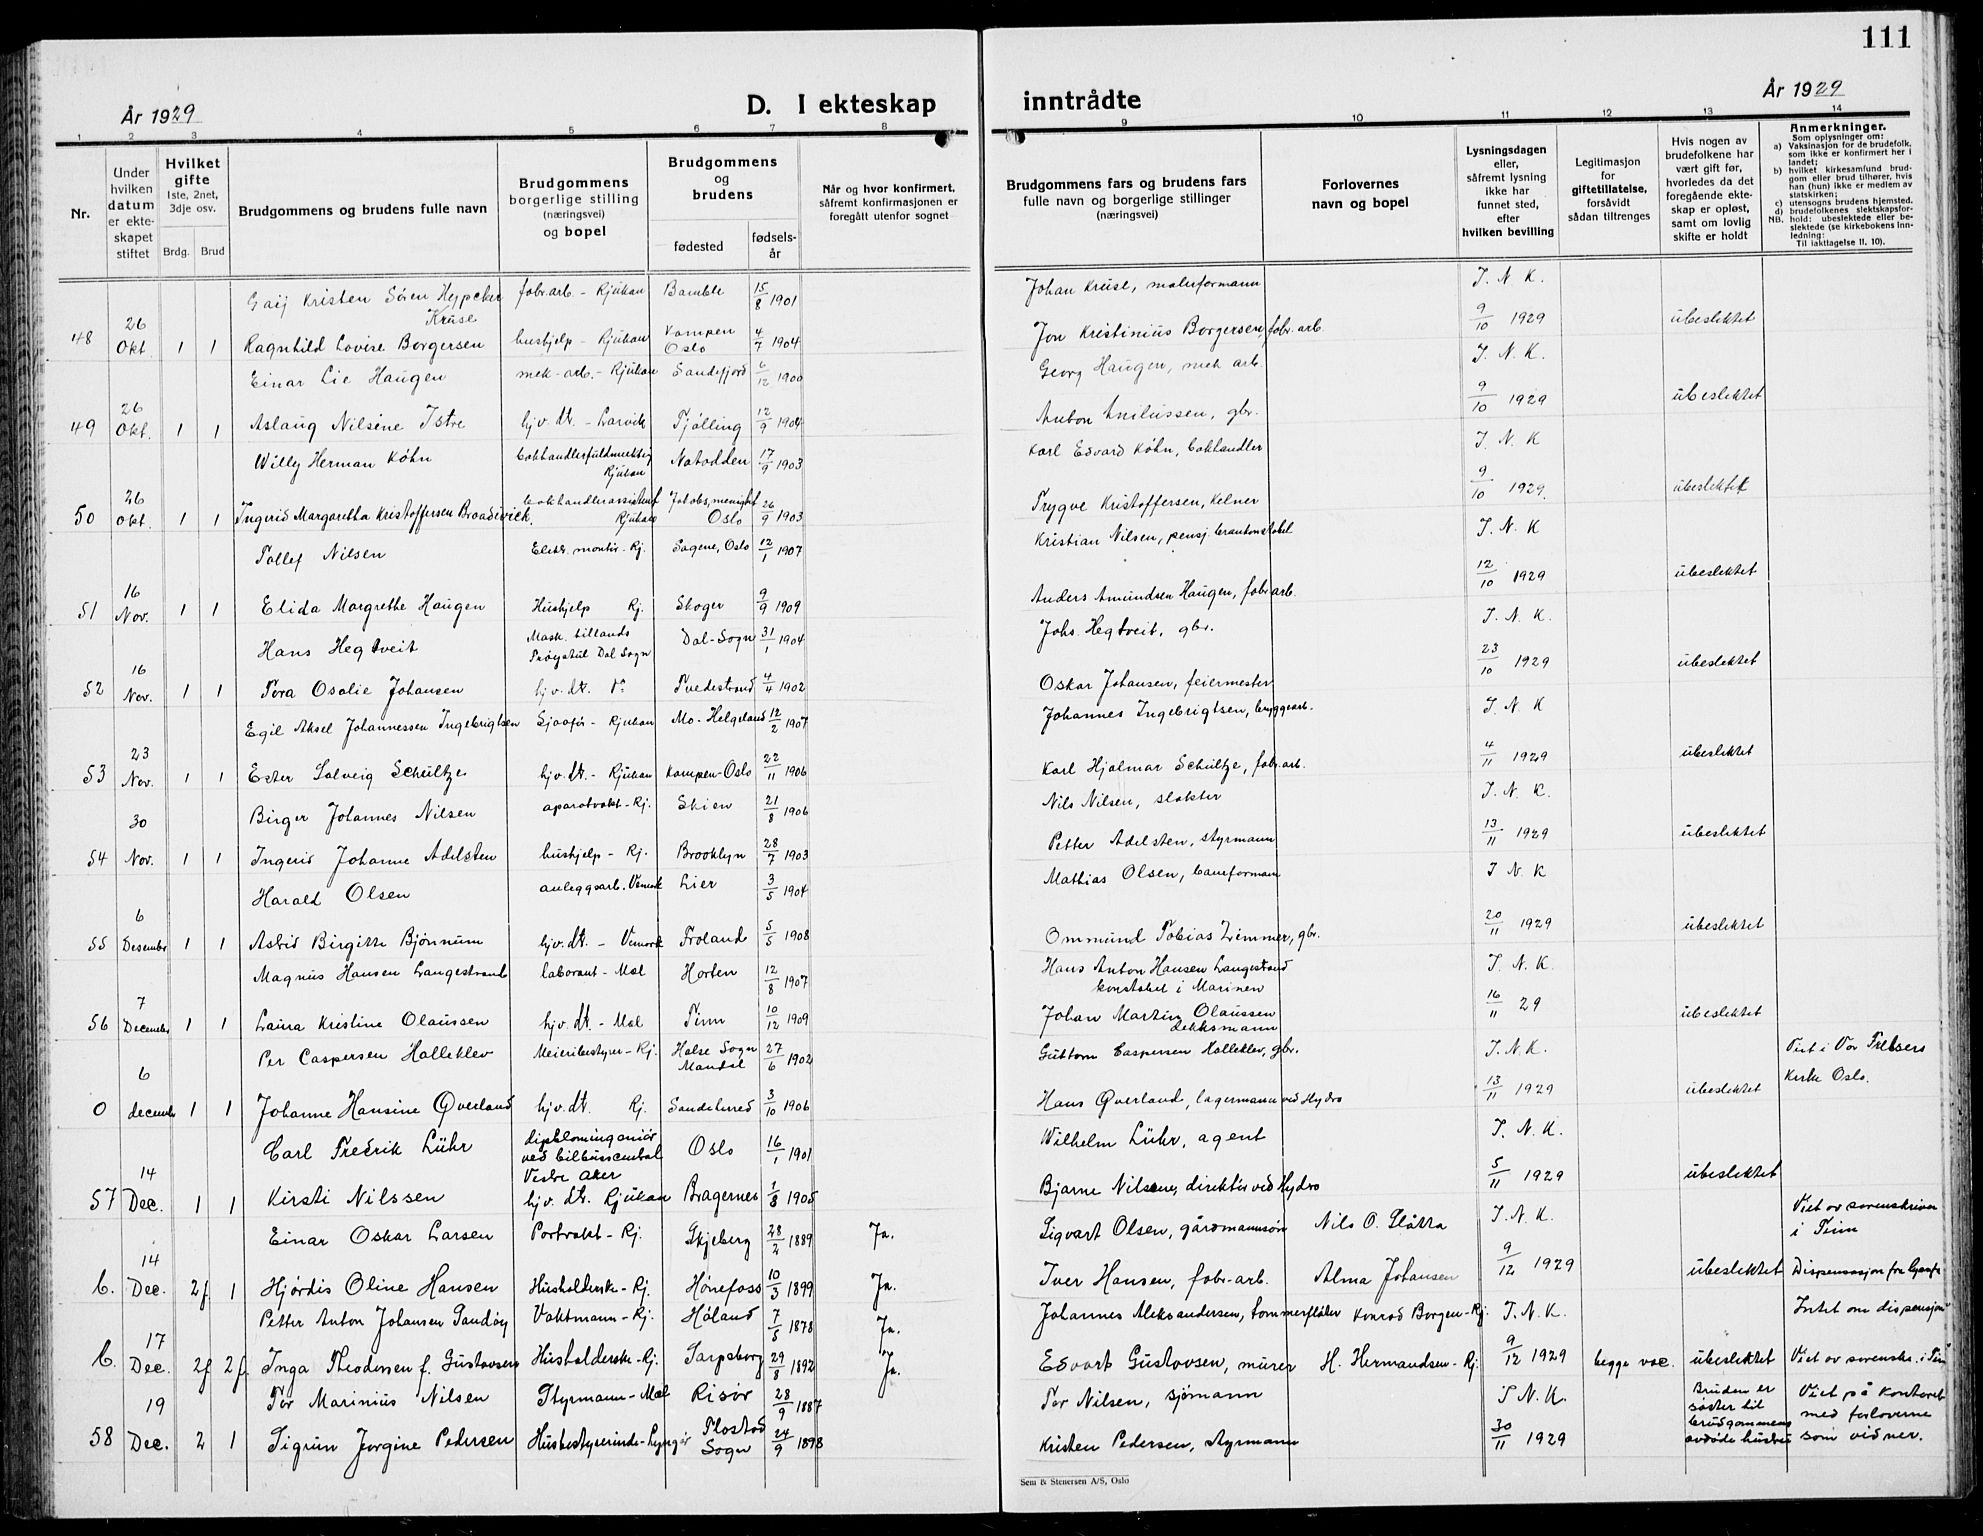 111
År 1929
D. I ekteskap
inntrådte
År 1929
1 2 3 4 5 6 7 8 9 10 11 12 13 14
Nr.
Under hvilken datum er ekteskapet stiftet
Hvilket gifte
1ste, 2net, 3dje osv.
Brdg. Brud
Brudgommens og brudens fulle navn
Brudgommens borgerlige stilling (næringsvei) og bopel
Brudgommens og brudens
fødested
fødselsår
Når og hvor konfirmert, såfremt konfirmasjonen er foregått utenfor sognet
Brudgommens fars og brudens fars fulle navn og borgerlige stillinger (næringsvei)
Forlovernes navn og bopel
Lysningsdagen eller, såfremt lysning ikke har funnet sted, efter hvilken bevilling
Legitimasjon for giftetillatelse, forsåvidt sådan tiltrenges
Hvis nogen av brudefolkene har vært gift før, hvorledes da det foregående ekteskap er opløst, samt om lovlig skifte er holdt
Anmerkninger.
Som oplysninger om:
a) Vaksinasjon for de brudefolk, som ikke er konfirmert her i landet;
b) hvilket kirkesamfund brudgom eller brud tilhører, hvis han (hun) ikke er medlem av statskirken;
c) utensogns brudens hjemsted.
d) brudefolkenes slektskapsforhold: ubeslektede eller beslektede (se kirkebokens innledning:
NB. Til iakttagelse II. 10).
Gaij Kristen Sören Heypcker Kruse fabr.arb - Rjukan Bamble 15/8 1901 Johan Kruse, malerformann I. N. K.
48 26 Okt 1 1 Ragnhild Lovise Borgersen hushjelp - Rjukan Kampen Oslo 4/7 1904 Jon Kristinius Borgersen, fabr.arb 9/10 1929 ubeslektet
Einar Lie Haugen mek-arb. - Rjukan Sandefjord 6/12 1900 Georg Haugen, mek arb. I. N. K.
49 26 Okt. 1 1 Aslaug Nilsine Istre hjv. dt. - Larvik Tjølling 12/9 1904 Anton Anilussen, gbr. 9/10 1929 ubeslektet
Willy Herman Köhn bokhandlerfuldmektig Rjukan Notodden 17/9 1903 Karl Edvard Köhn, bokhandler I. N. K
50 26 Okt. 1 1 Ingerid Margaretha Kristoffersen Broadwick. bokhandlerassistent Rjukan Jakobs, menighet Oslo 26/9 1903 Trygve Kristoffersen, Kelner 9/10 1929. ubeslektet
Tollef Nilsen Elektr. montör - Rj. Sagene, Oslo 12/1 1907 Kristian Nilsen, pensj. brankonstabel I. N. K
51 16 Nov. 1 1 Elida Margrethe Haugen Hushjelp Rj. Skoger 9/9 1909 Anders Amundsen Haugen, fabr arb. 12/10 1929 ubeslektet
Hans Hegtveit Mask. tillands Prøystul Dal Sogn Dal-Sogn 31/1 1904 Johs. Hegtveit, gbr. I. N. K.
52 16 Nov. 1 1 Tora Osalie Johansen hjv. dt. Tvedestrand 4/4 1902 Oskar Johansen, feiermester 23/10 1929 ubeslektet
Egil Aksel Johannessen Ingebrigtsen Sjaafør - Rjukan Mo-Helgeland 12/2 1907 Johannes Ingebrigtsen, bryggearb. I. N. K
53 23 Nov. 1 1 Ester Solveig Schultze hjv. dt. - Rjukan Kampen-Oslo 22/11 1906 Karl Hjalmar Schultze, fabr.arb. 4/11 1929 ubeslektet
Birger Johannes Nilsen aparatvakt - Rj. Skien 21/8 1906 Nils Nilsen, slakter I. N. K.
54 30 Nov. 1 1 Ingerid Johanne Adelsten hushjelp - Rj. Brooklyn 28/7 1903 Petter Adelsten, styrmann 13/11 1929 ubeslektet
Harald Olsen anleggsarb. Vemork Lier 3/5 1904 Mathias Olsen, baneformann I N. K
55 6 Desember 1 1 Astrid Birgitte Bjønnum hjv. dt. - Vemork Froland 5/5 1908 Ommund Tobias Zimmer, gbr. 20/11 1929 ubeslektet
Magnus Hansen Langestrand laborant - Mæl Horten 12/8 1907 Hans Anton Hansen Langestrand konstabel i Marinen I. N. K.
56 7 December 1 1 Laura Kristine Olaussen hjv. dt. - Mæl Tinn 10/12 1909 Johan Martin Olaussen dekksmann 16/11 29 ubeslektet
Per Caspersen Halleklev Meieribestyrer - Rj. Halse Sogn Mandal 27/6 1902 Guttorm Caspersen Halleklev, gbr. I. N. K. Viet i Vor Frelsers Kirke Oslo.
0 6 december 1 1 Johanne Hansine Øverland hjv. dt. Rj. Sandeherred 3/10 1906 Hans Øverland, lagermann ved Hydro 13/11 1929 ubeslektet
Carl Fredrik Lühr diplomingeniør ved bilbuscentral Vestre Aker Oslo 16/1 1901 Wilhelm Lühr, agent I. N. K.
57 14 Dec. 1 1 Kirsti Nilssen hjv. dt. Rjukan Bragernes 1/8 1905 Bjarne Nilssen, direktör ved Hydro 5/11 1929 ubeslektet
Einar Oskar Larsen Portvakt - Rj. Skjeberg 28/2 1889 Ja. Sigvart Olsen, gårdmannsøn Nils O. Slåtta I. N. K. Viet av sorenskriver i Tinn
b. 14 Dec. 2f 1 Hjørdis Oline Hansen Husholderske - Rj. Hønefoss 10/3 1899 Ja. Iver Hansen, fabr-arb. Alma Johansen 9/12 1929 ubeslektet Dispensasjon fra
Petter Anton Johansen Sandøy Vaktmann - Rj. Høland 7/5 1878 Ja. Johannes Aleksandersen, tømmerfløter Konrad Borgen - Rj. I. N. K. Intet om dispensasjon
b. 17 Dec. 2f 2f. Inga Theodorsen f. Gustavsen Husholderske - Rj. Sarpsborg 29/8 1892 Ja. Edvart Gustavsen, murer H. Hermandsen - Rj. 9/12 1929 begge vac. ubeslektet Viet av sorensk. i Tinn
Tor Marinius Nilsen Styrmann - Mæl Risør 28/9 1887 Tor Nilsen, sjømann I N. K. Bruden er søster til brudgommens avdøde hustru Viet på kontoret med forloverne som vidner.
58 19 Dec. 2 1 Sigrun Jorgine Pedersen Husbestyrerinde - Lyngør Flostad Sogn 24/9 1898 Kristen Pedersen, styrmann 30/11 1929
Sem & Stenersen A/S, Oslo